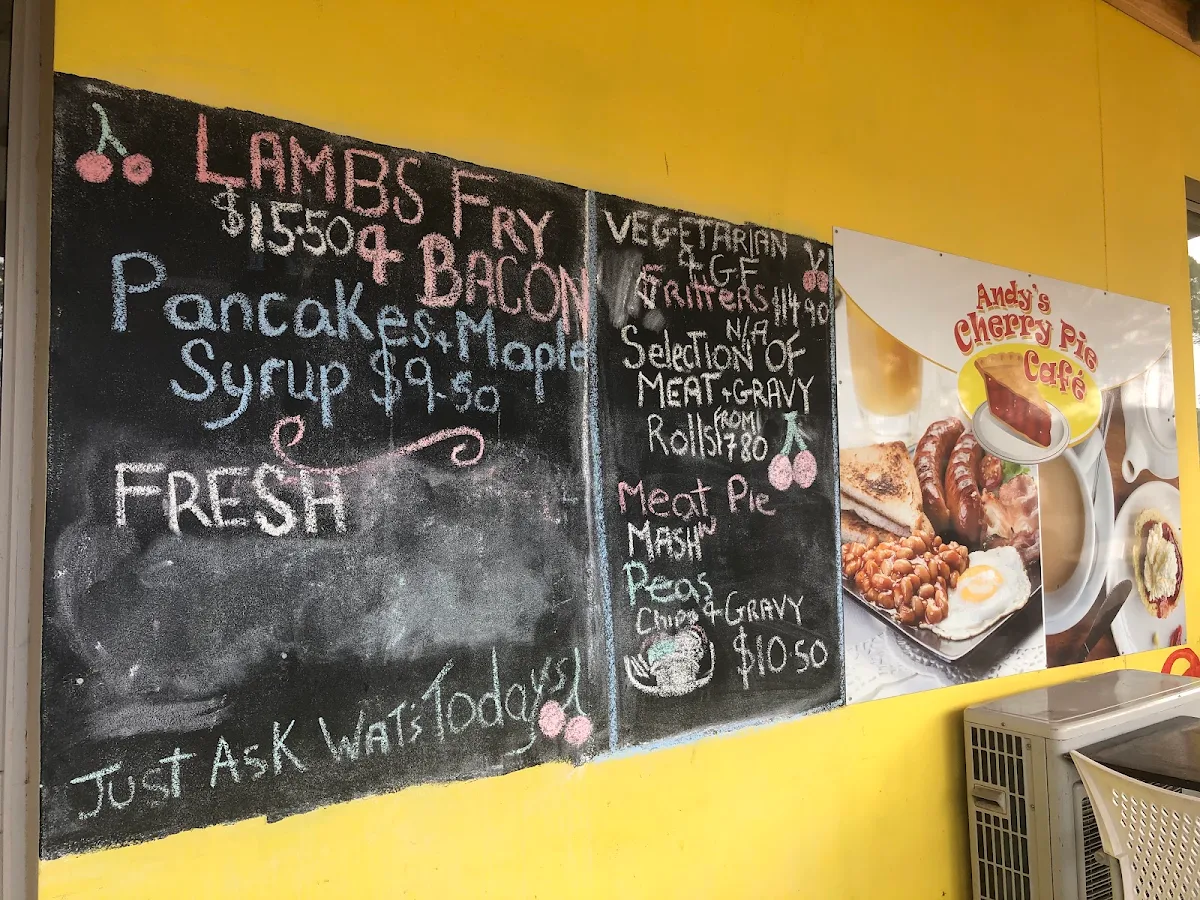 LAMBS FRY
$15.50 & BACON
Pancakes + Maple
Syrup $9.50
FRESH
Just Ask Wats Todays!
VEGETARIAN
& GF
Fritters $14.90
N/A
Selection OF
MEAT + GRAVY
Rolls FROM
$7.80
Meat Pie
MASH N
Peas
Chips & GRAVY
$10.50
Andy's
Cherry Pie
Café